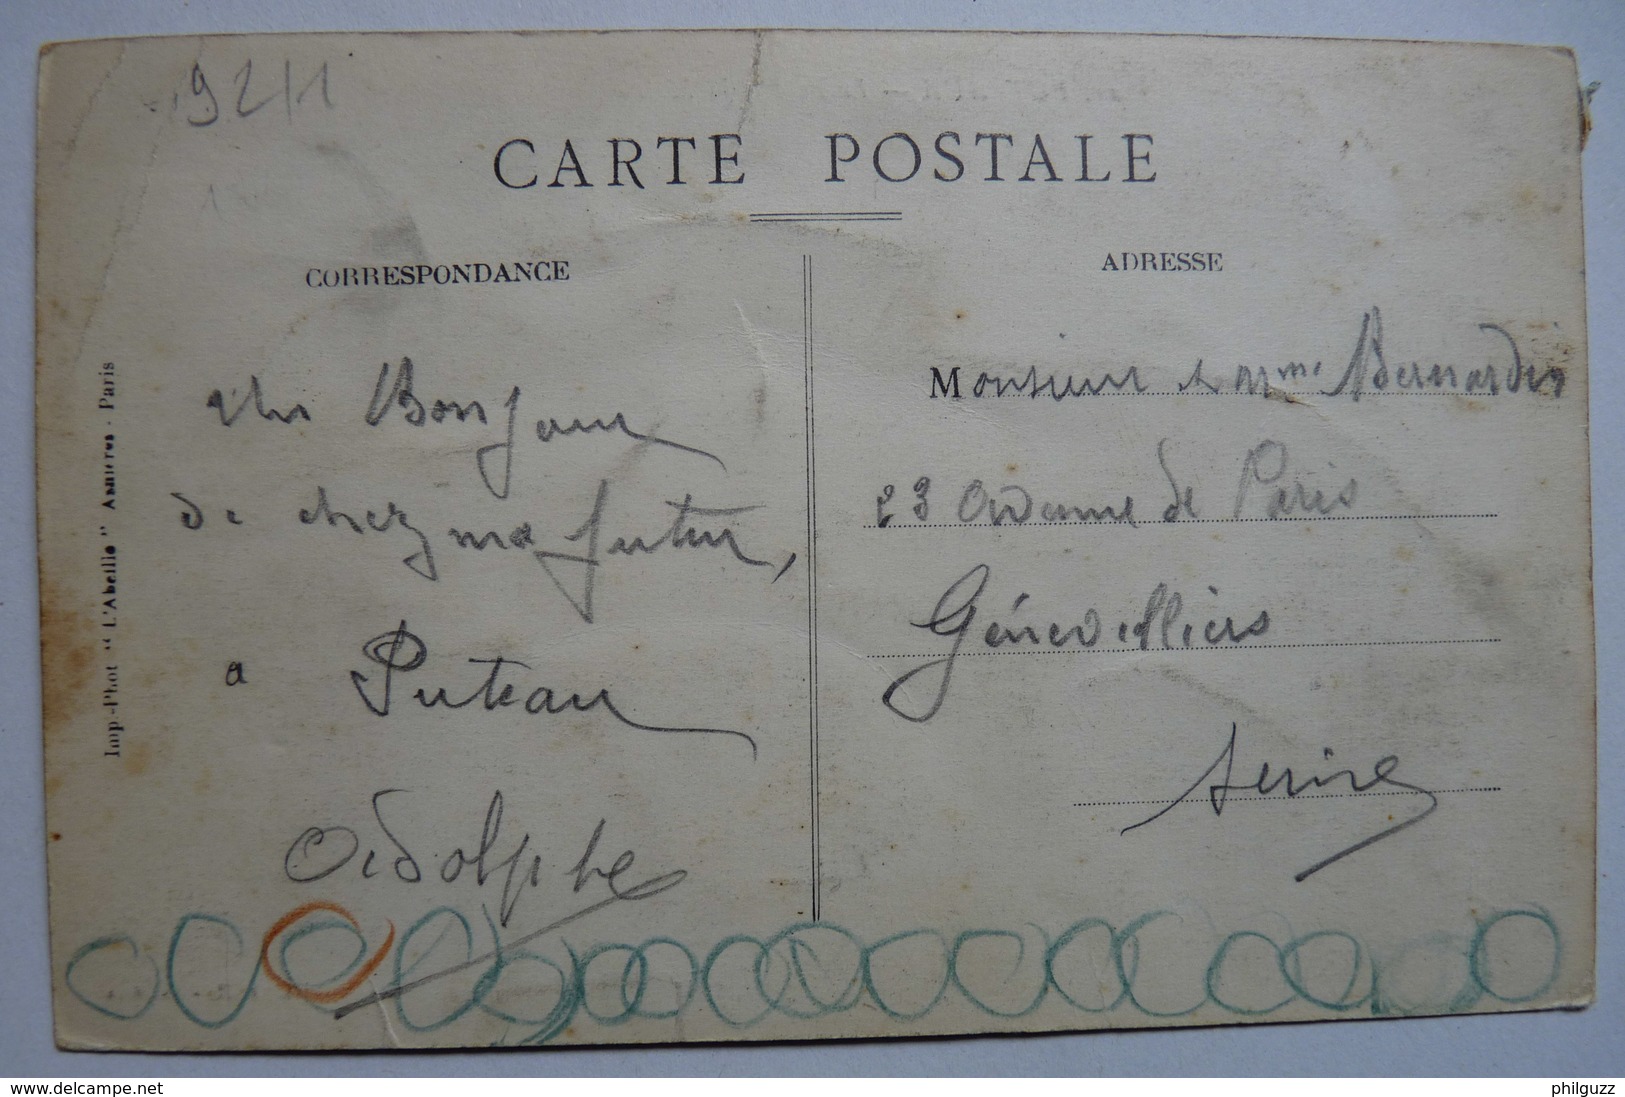 1921
CARTE POSTALE
CORRESPONDANCE
ADRESSE
Imp-Phot "L'Abeille" Asnières - Paris
Un Bonjour
de chez ma futur,
a Puteau
Adolphe
Monsieur et Mme Bernardin
23 Avenue de Paris
Génevilliers
Seine
delcampe.net
philguzz